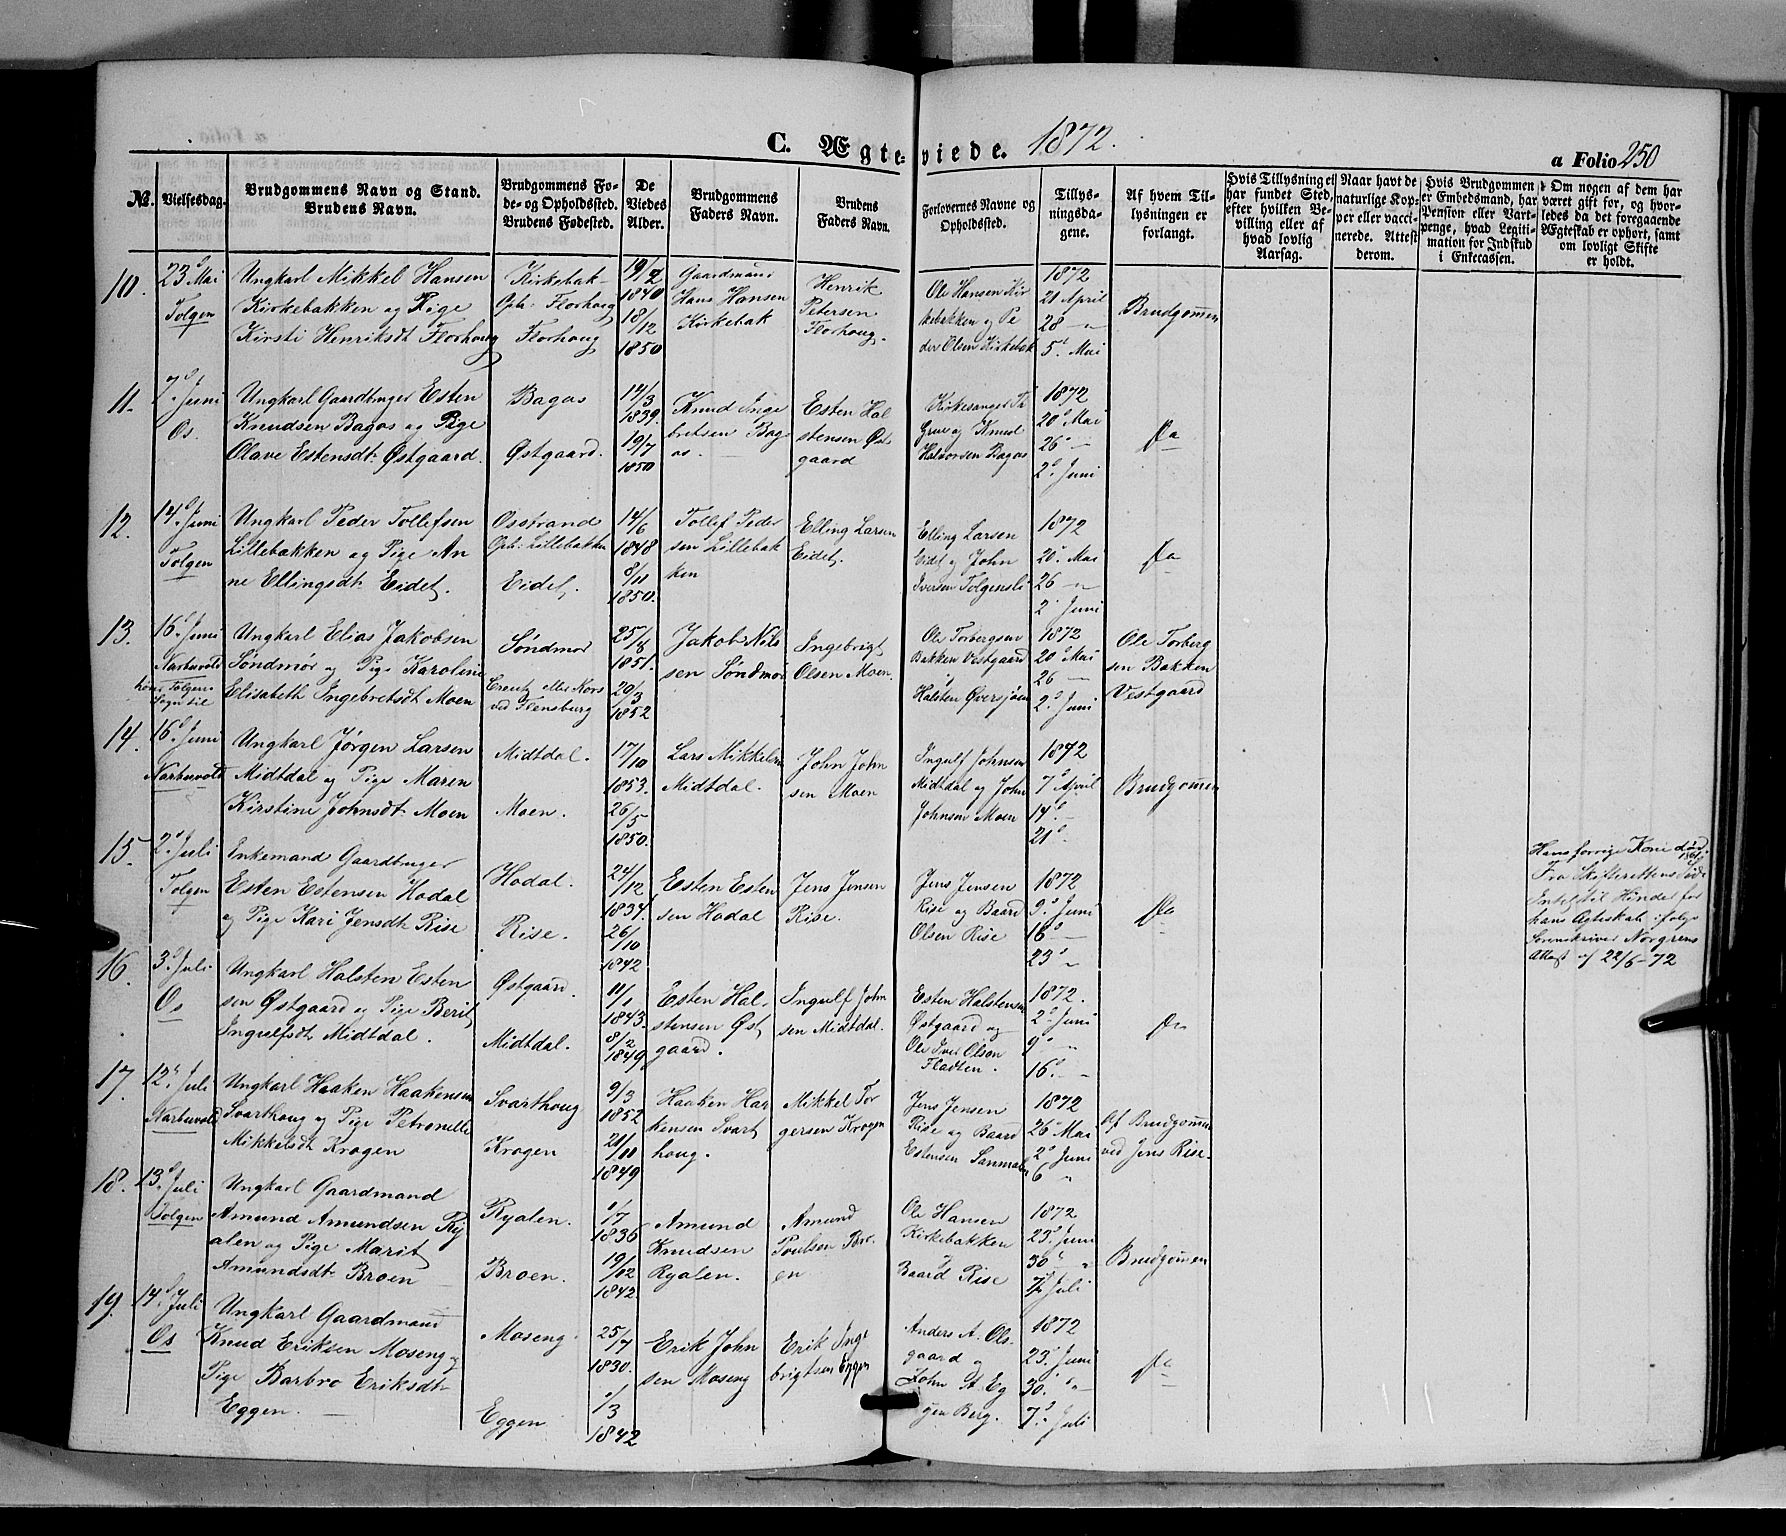 C. Ægteviede. 1872.
a Folio 250
No.
Vielsesdag.
Brudgommens Navn og Stand.
Brudens Navn.
Brudgommens Fø-
de- og Opholdssted.
Brudens Fødested.
De
Viedes
Alder.
Brudgommens
Faders Navn.
Brudens
Faders Navn.
Forlovernes Navne og
Opholdssted.
Tillys-
ningsda-
gene.
Af hvem Til-
lysningen er
forlangt.
Hvis Tillysning ei
har fundet Sted,
efter hvilken Be-
villing eller af
hvad lovlig
Aarsag.
Naar havt de
naturlige Kop-
per eller vacci-
nerede. Attest
derom.
Hvis Brudgommen
er Embedsmand, har
Pension eller Vart-
penge, hvad Legiti-
mation for Indskud
i Enkecassen.
Om nogen af dem har
været gift før, og hvor-
ledes da det foregaaende
Ægteskab er ophørt, samt
om lovligt Skifte
er holdt.
10.
23d Mai
Tolgen
Ungkarl Mikkel Hansen
Kirkebakken og Pige
Kirsti Henriksdt Florhoug
Kirkebak
Oph: Florhoug
Florhoug
19/2
1840
18/12
1850
Gaardmand
Hans Hansen
Kirkebak
Henrik
Petersen
Florhoug.
Ole Hansen Kir
kebakken og Pe
der Olsen Kirkebak
1872
21 April
28 — "
5d Mai
Brudgommen
11.
7d Juni
Os.
Ungkarl Gaardbruger Esten
Knudsen Bagos og Pige
Olave Estensdt. Østgaard.
Bagos
Østgaard.
14/3
1839.
19/7
1850
Knud Inge
bretsen Bag
os.
Esten Hal
stensen Øst
gaard
Kirkesanger
Grue og Knud
Halvorsen Bagos
1872
20d Mai
26d —
2d Juni
Da
12.
14d Juni
Tolgen
Ungkarl Peder Tollefsen
Lillebakken og Pige An
ne Ellingsdt. Eidet.
Osstrand
Oph: Lillebakken
Eidet.
14/6
1848
8/11
1850.
Tollef Peder
sen Lillebak
ken
Elling Larsen
Eidet.
Elling Larsen
Eidet og John
Iversen Tolgensli
1872
20d Mai
26 — "
2d Juni
Da
13.
16d Juni
Narbuvold
Tolgens
Sogn til
Ungkarl Elias Jakobsen
Søndmør og Pige Karoline
Elisabeth Ingebretsdt Moen
Søndmør
Creutz eller Kors
ved Flensburg
25/8
1851.
20/3
1852
Jakob Nils
sen Søndmør
Ingebrigt
Olsen Moen.
Ole Torbergsen
Bakken Vestgaard
Halsten Øversjøen
1872
20d Mai
26 —
2d Juni
Ole Torberg
sen Bakken
Vestgaard
14.
16d Juni
Narbuvold
Ungkarl Jørgen Larsen
Midtdal og Pige Maren
Kirstine Johnsdt. Moen
Midtdal.
Moen.
17/10
1853.
26/5
1850.
Lars Mikkelsen
Midtdal.
John John
sen Moen
Ingulf Johnsen
Midtdal og John
Johnsen Moen
1872
7d April
14d —
21d —
Brudgommen
15.
2d Juli
Tolgen
Enkemand Gaardbruger
Esten Estensen Hodal
og Pige Kari Jensdt Rise
Hodal.
Rise.
24/12
1834.
26/10
1842
Esten Esten
sen Hodal
Jens Jensen
Rise.
Jens Jensen
Rise og Baard
Olsen Rise
1872
9d Juni
16d —
23d "
Da
Hans forrige Kone død
1861.
Fra Skifterettens Side
Intet til Hinder for
hans Ægteskab ifølge
Sorenskriver Norgrens
Attest af 22/6-72
16.
3d Juli
Os
Ungkarl Halsten Esten
sen Østgaard og Pige Berit
Ingulfsdt Midtdal.
Østgaard.
Midtdal.
11/1
1843.
8/2
1849
Esten Hal-
stensen Øst
gaard.
Ingulf John
sen Midtdal.
Esten Halstensen
Østgaard og
Ole Iver Olsen
Fladten.
1872.
2d Juni
9d "
16d —
Da
17.
12d Juli
Narbuvold
Ungkarl Haaken Haakensen
Svarthoug og Pige Petronelle
Mikkelsdt Krogen
Svarthoug
Krogen
9/3
1852
21/11
1849
Haaken Haa
kensen Svart
houg.
Mikkel Tor
gersen Krogen
Jens Jensen
Rise og Baard
Estensen Sanmalen
1872
26d Mai
2d Juni
6 "
Af Brudgommen
ved Jens Rise.
18.
13d Juli
Tolgen
Ungkarl Gaardmand
Amund Amundsen Ry
alen og Pige Marit
Amundsdt. Broen
Ryalen.
Broen.
1/7
1836
19/12
1842.
Amund
Knudsen
Ryalen.
Amund
Poulsen Bro-
en
Ole Hansen
Kirkebakken
Baard Rise
1872
23d Juni
30d "
7d Juli
Brudgommen
19.
14d Juli
Os
Ungkarl Gaardmand
Knud Eriksen Moseng og
Pige Barbro Eriksdt.
Eggen. —
Moseng.
Eggen
25/7
1830.
1/3
1842
Erik John
sen Moseng
Erik Inge
brigtsen Eggen
Anders A. Ols-
gaard og
John A. Eg
gen Berg.
1872
23d Juni
30d "
7d Juli
Da